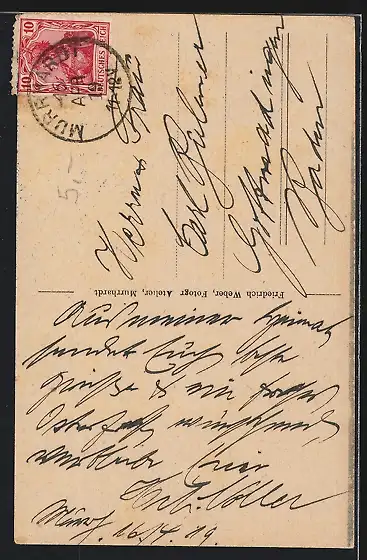 10
10
DEUTSCHES REICH
MURRHARDT
APR
19
5,-
Herrn
Carl
Gottmadingen
Baden
Friedrich Weber, Fotogr. Atelier, Murrhardt
Aus meiner Heimat
sendet Euch beste
Grüße & ein frohes
Osterfest wünschend
verbleibe Euer
Murrh. 16/4.19.